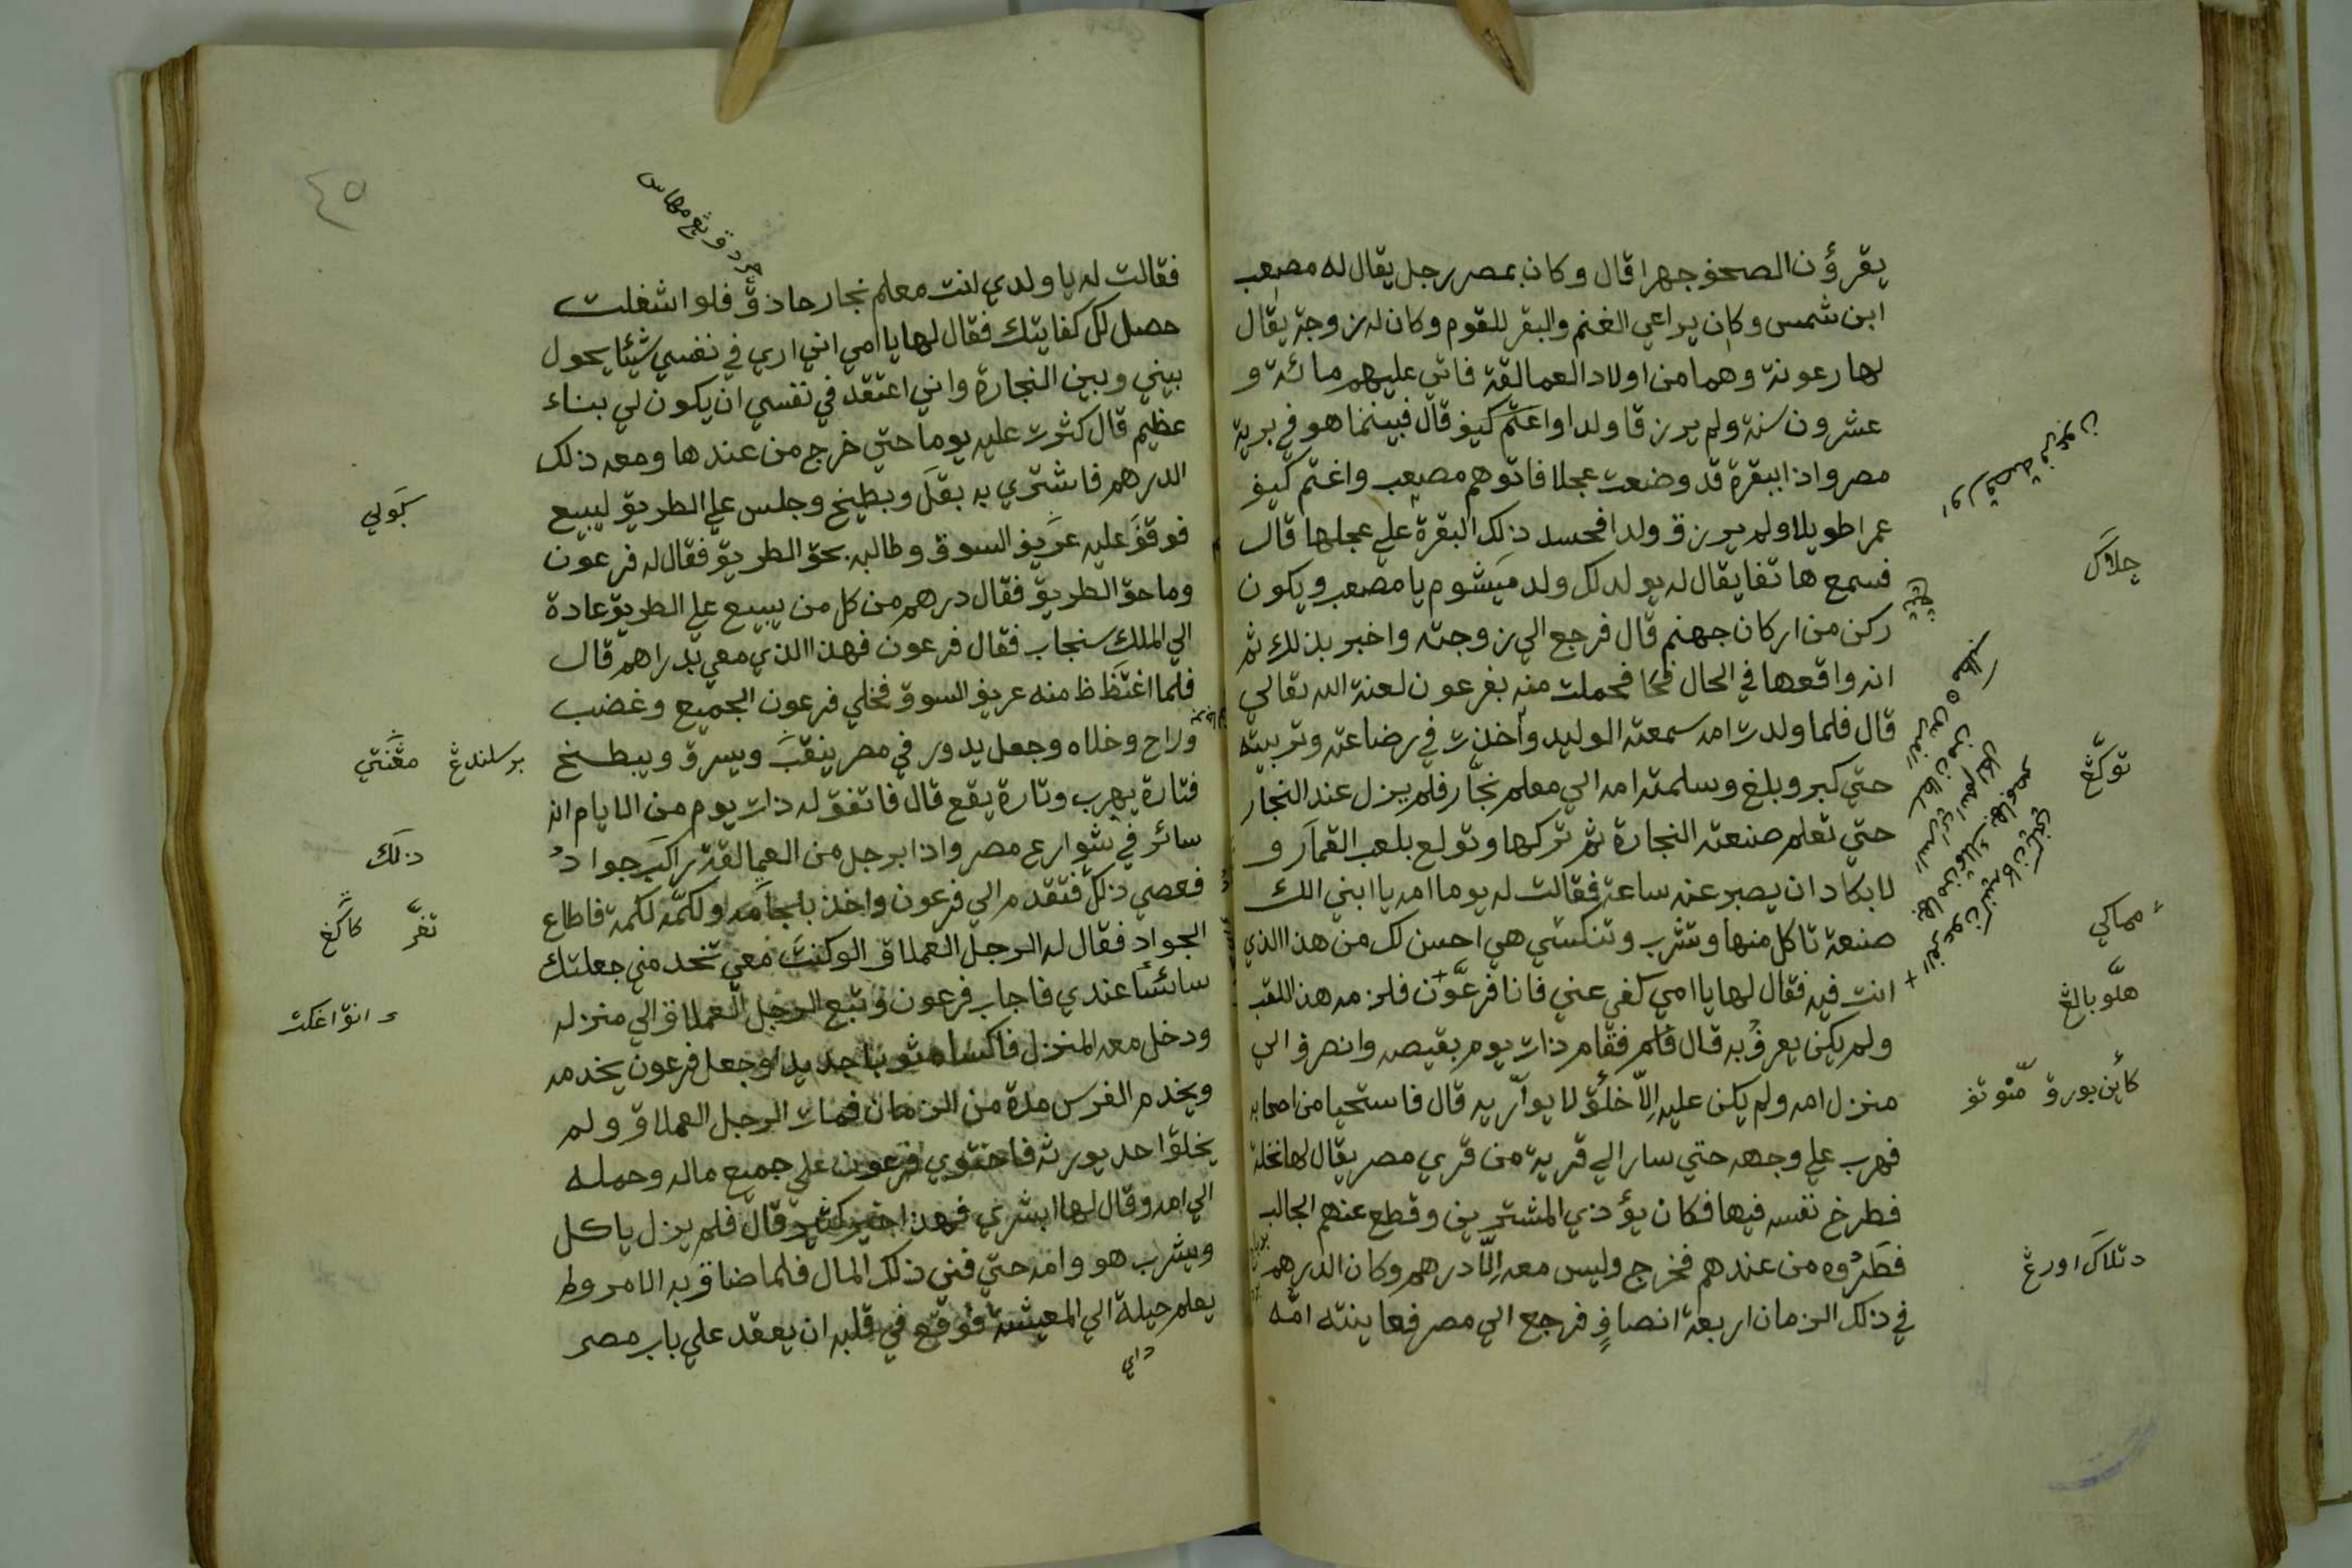 يقرؤن الصحف جهرا قال وكان بمصر رجل يقال له مصعب
ابن شمس وكان يراعي الغنم والبقر للقوم وكان له زوجة يقال
لها رعونة وهما من اولاد العمالقة فاتي عليهم مائة و
عشرون سنة ولم يرزقا ولدا واغتم كيف قال فبينما هو في برية
مصر واذا ببقرة قد وضعت عجلا فاتوهم مصعب واغتم كيف
عمرا طويلا ولم يرزق ولدا فحسد ذلك البقرة علي عجلها قال
فسمع هاتفا يقال له يولد لك ولد ميشوم يا مصعب ويكون
ركن من اركان جهنم قال فرجع الي زوجته واخبر بذلك ثم
انه واقعها في الحال فحملت منه بفرعون لعنة الله تعالي
قال فلما ولدت امه سمعته الوليد وأخذت في رضاعته وتربيته
حتي كبر وبلغ وسلمته امه الي معلم نجّار فلم يزل عند النجار
حتي تعلم صنعته النجارة ثم تركها وتولع بلعب القمار و
لا يكاد ان يصبر عنه ساعة فقالت له يوما امه يا ابني الك
صنعة تاكل منها وتشرب وتنكسي هي احسن لك من هذا الذي
انت فيه فقال لها يا امي كفي عني فانا فرعون فلزمه هذا اللقب
ولم يكن يعرف به قال قلم فقام ذات يوم بقيصه وانصرف الي
منزل امه ولم يكن عليه الّا خلق لا يواريه قال فاستحيا من اصحابه
فهرب علي وجهه حتي سار الي قرية من قري مصر يقال لها نخلة
فطرح نفسه فيها فكان يؤذي المشترين وقطع عنهم الجالب
فطردوه من عندهم فخرج وليس معه الّا درهم وكان الدرهم
في ذلك الزمان اربعة انصاف فرجع الي مصر فعاينته امّه
جلاڬ
توكّڠ
مماكي
هلوبالڠ
كاين بورق منوتڤ
دتلاك اورڠ
٤٥
فقالت له يا ولدي انت معلم نجار حاذق فلو اشغلت
حصل لك كفايتك فقال لها يا امي اني اري في نفسي شيئا يحول
بيني وبين النجارة واني اعتقد في نفسي ان يكون لي بناء
عظيم قال كثرت عليه يوما حتي خرج من عندها ومعه ذلك
الدرهم فاشتري به بقل وبطيخ وجلس علي الطريق ليبيع
فوقف عليه عريف السوق وطالبه بحق الطريق فقال له فرعون
وما حق الطريق فقال درهم من كل من يبيع علي الطريق عادة
الي الملك سنجاب فقال فرعون فهذا الذي معي بدراهم قال
فلما اغتظ منه عريف السوق فخلي فرعون الجميع وغضب
وراح وخلاه وجعل يدور في مصر ينقب ويسرق ويبطخ
فتارة يهرب وتارة يقع قال فاتفق له ذات يوم من الايام انه
سائر في شوارع مصر واذا برجل من العمالقة راكب جواد
فعصي ذلك فتقدم الي فرعون واخذ بلجامه ولكمّه لكمة فاطاع
الجواد فقال له الرجل العملاق الو كنت معي تخدمني جعلتك
سائسًا عندي فاجاب فرعون وتبع الرجل العملاق الي منزله
ودخل معه المنزل فاكساه ثوبا جديدا وجعل فرعون يخدمه
ويخدم الفرس مدة من الزمان فمات الرجل العملاق ولم
يخلق احد يورثه فاحتوي فرعون علي جميع ماله وحمله
الي امه وقال لها ابشري فهذا خير كثير قال فلم يزل ياكل
ويشرب هو وامه حتي فني ذلك المال فلما ضاق به الامر ولم
يعلم حيلة الي المعيشة فوقع في قلبه ان يعقد علي باب مصر
كبولي
برسلندڠ
ذلك